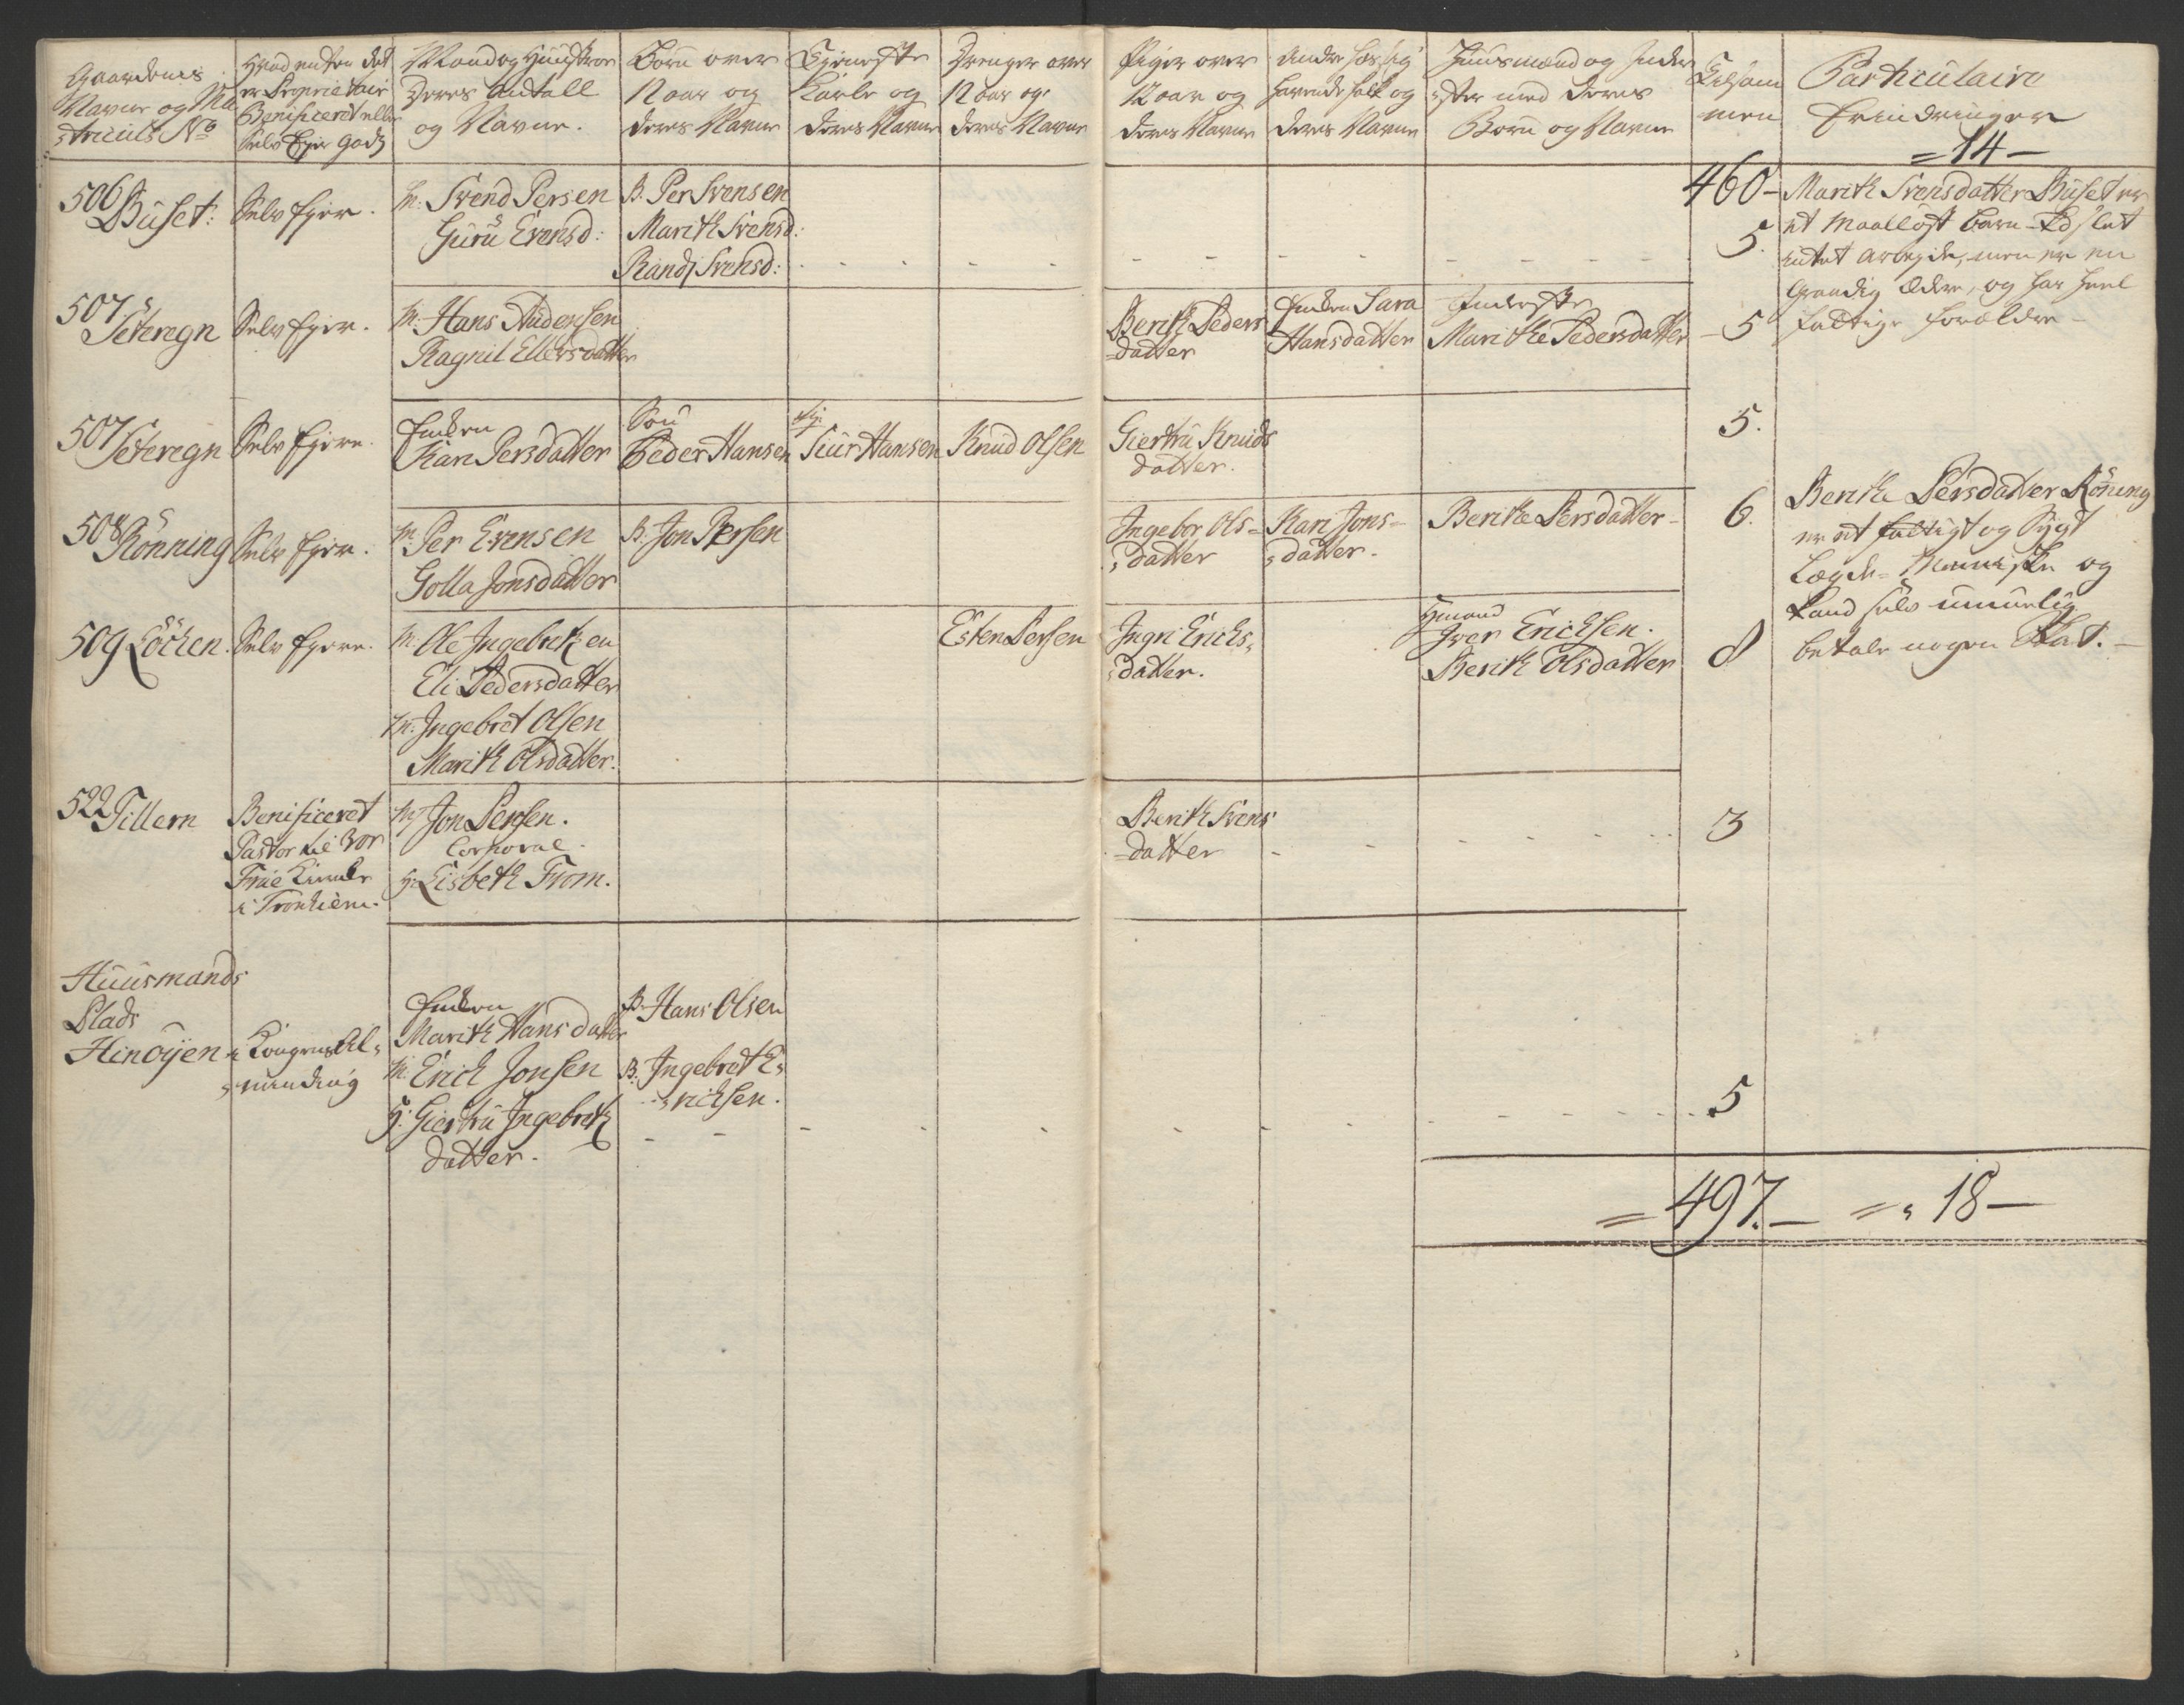 Gaardenes
Navne og Ma
=triculs No
Hvad enten det
er Proprietair
Benificeret eller
Selv Ejer Gods
Mand og Hustroe
Deres Antall
og Navne.
Börn over
12 aar og
deres Navne
Tieneste
Karle og
deres Navne
Drenger over
12 aar og
deres Navne
Piger over
12 aar og
deres Navne
Andre hos sig
havende folk og
deres Navne
Huusmænd og Inder
=ster med deres
Börn og Navne
Tilsam
men
Particulaire
Erindringer
= 14 -
460 -
506 Buset:
Selv Ejer.
M: Svend Persen
Guru Evensd:
B. Per Svensen
Marith Svensd:
Randj Svensd:
5.
Marith Svensdatter Buset er
et Maallöst barn - Ed slet
intet arbejde, men er en
Grandig Æder, og har heel
fattige forældre -
507 Seteregn
Selv Ejer.
M: Hans Andersen
Ragnil Ellersdatter
Berith Peders
=datter
Enken Sara
Hansdatter
Inderste
Marithe Pedersdatter
- 5
507 Seteregn
Selv Ejere.
Enken
Kari Persdatter
Sön
Peder Hansen
Siur Hansen
Knud Olsen
Giertru Knuds
datter.
5.
508 Rönning
Selv Ejer.
M Per Evensen
Golla Jonsdatter
B. Jon Persen
Ingebor Ols=
=datter
Kari Jons=
=datter.
Berithe Persdatter -
6.
Berithe Persdatter Röning
er et fattigt og Sygt
Lægde= Menniske og
kand selv umuelig
betale nogen Skat. -
509 Löchen.
Selv Ejere.
M: Ole Ingebretzen
Eli Pedersdatter
M: Ingebret Olsen
Marith Olsdatter.
Esten Persen
Ingri Erichs=
=datter.
Hmand
Iver Erichsen.
Berith Olsdatter
8
522 Tillern
Benificeret
Pastor til Vor
Frue Kirche
i Tronhiem.
M: Jon Persen.
Corporal.
H: Lisbeth From.
Berith Svens
=datter
3
Huusmands
Plads
Hinöyen
i Kongens Al=
=minding
Enken
Marith Hansdatter
M: Erich Jonsen
H: Giertru Ingebretz
datter.
B. Hans Olsen
B. Ingebret E=
=richsen.
5
= 497. - = 18 -